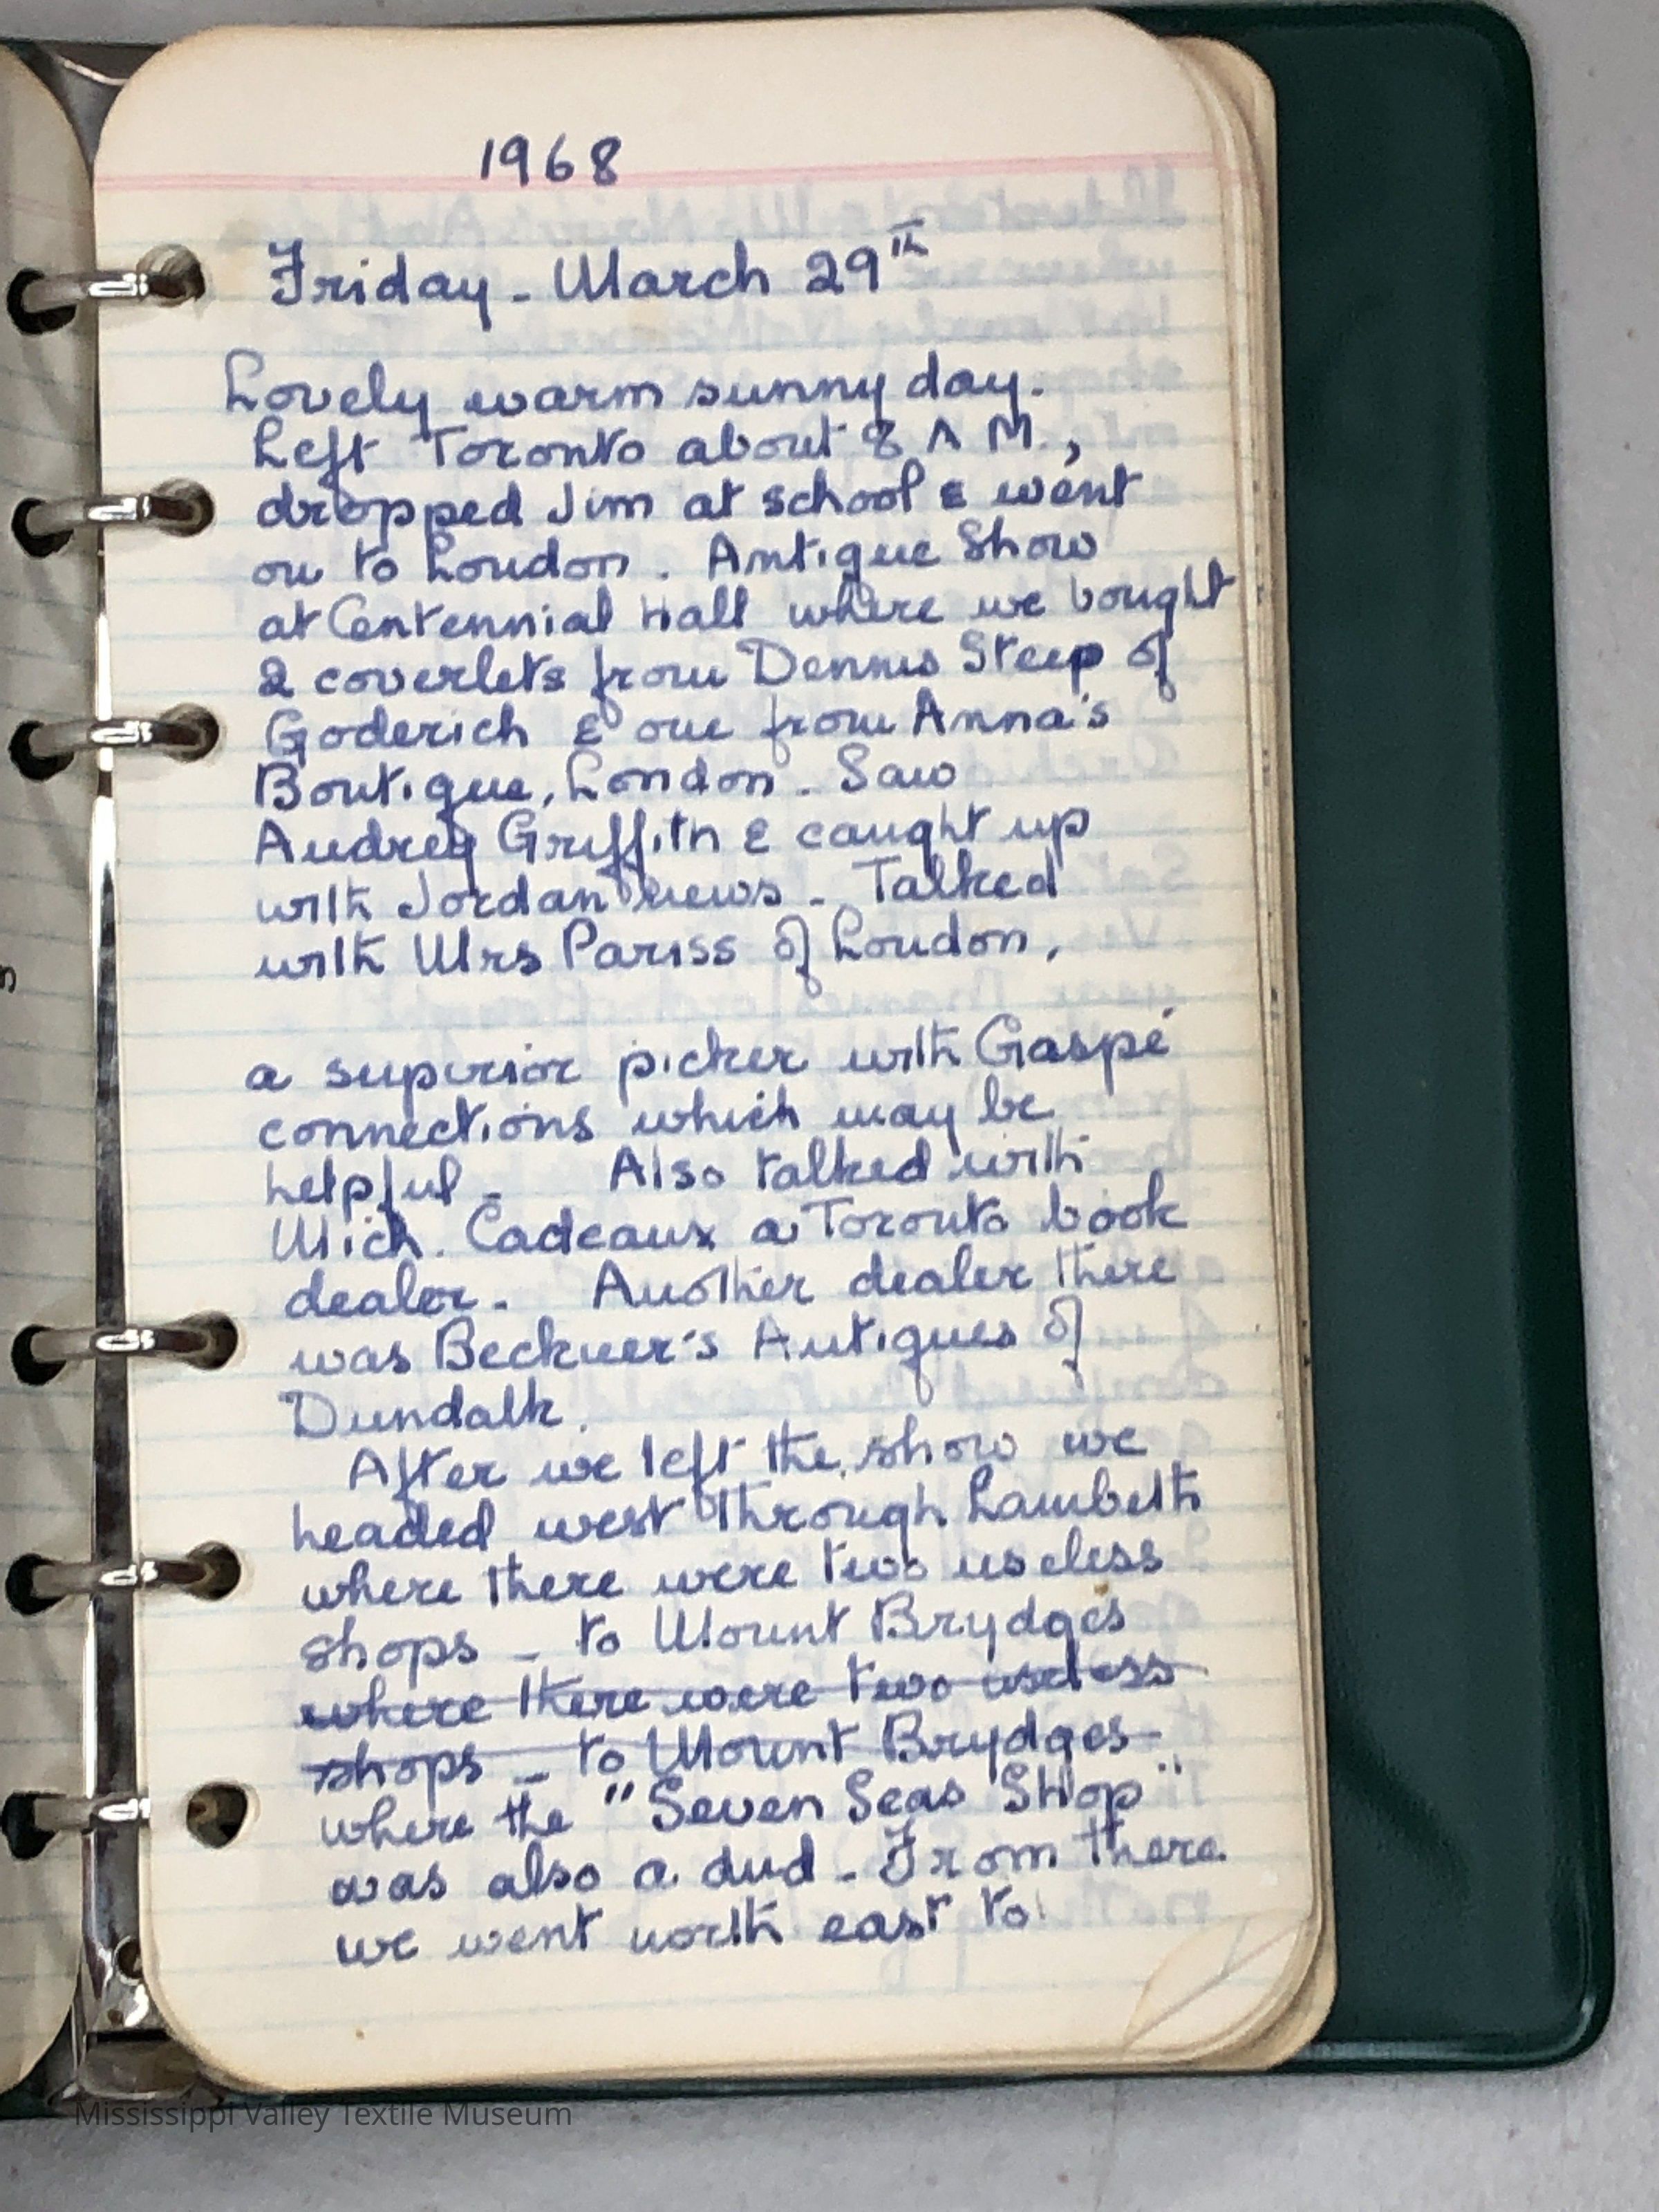 1968
Friday - March 29th
Lovely warm sunny day.
Left Toronto about 8 A M.,
dropped Jim at school & went
on to London. Antique Show
at Centennial Hall where we bought
2 coverlets from Dennis Steep of
Goderich & one from Anna's
Boutique, London. Saw
Audrey Griffith & caught up
with Jordan news - Talked
with Mrs Pariss of London,
a superior picker with Gaspé
connections which may be
helpful - Also talked with
Mich. Cadeaux a Toronto book
dealer. Another dealer there
was Beckner's Antiques of
Dundalk.
After we left the show we
headed west through Lambeth
where there were two useless
shops - to Mount Brydges
where there were two useless
shops - to Mount Brydges
where the "Seven Seas Shop"
was also a dud - From there
we went north east to
Mississippi Valley Textile Museum